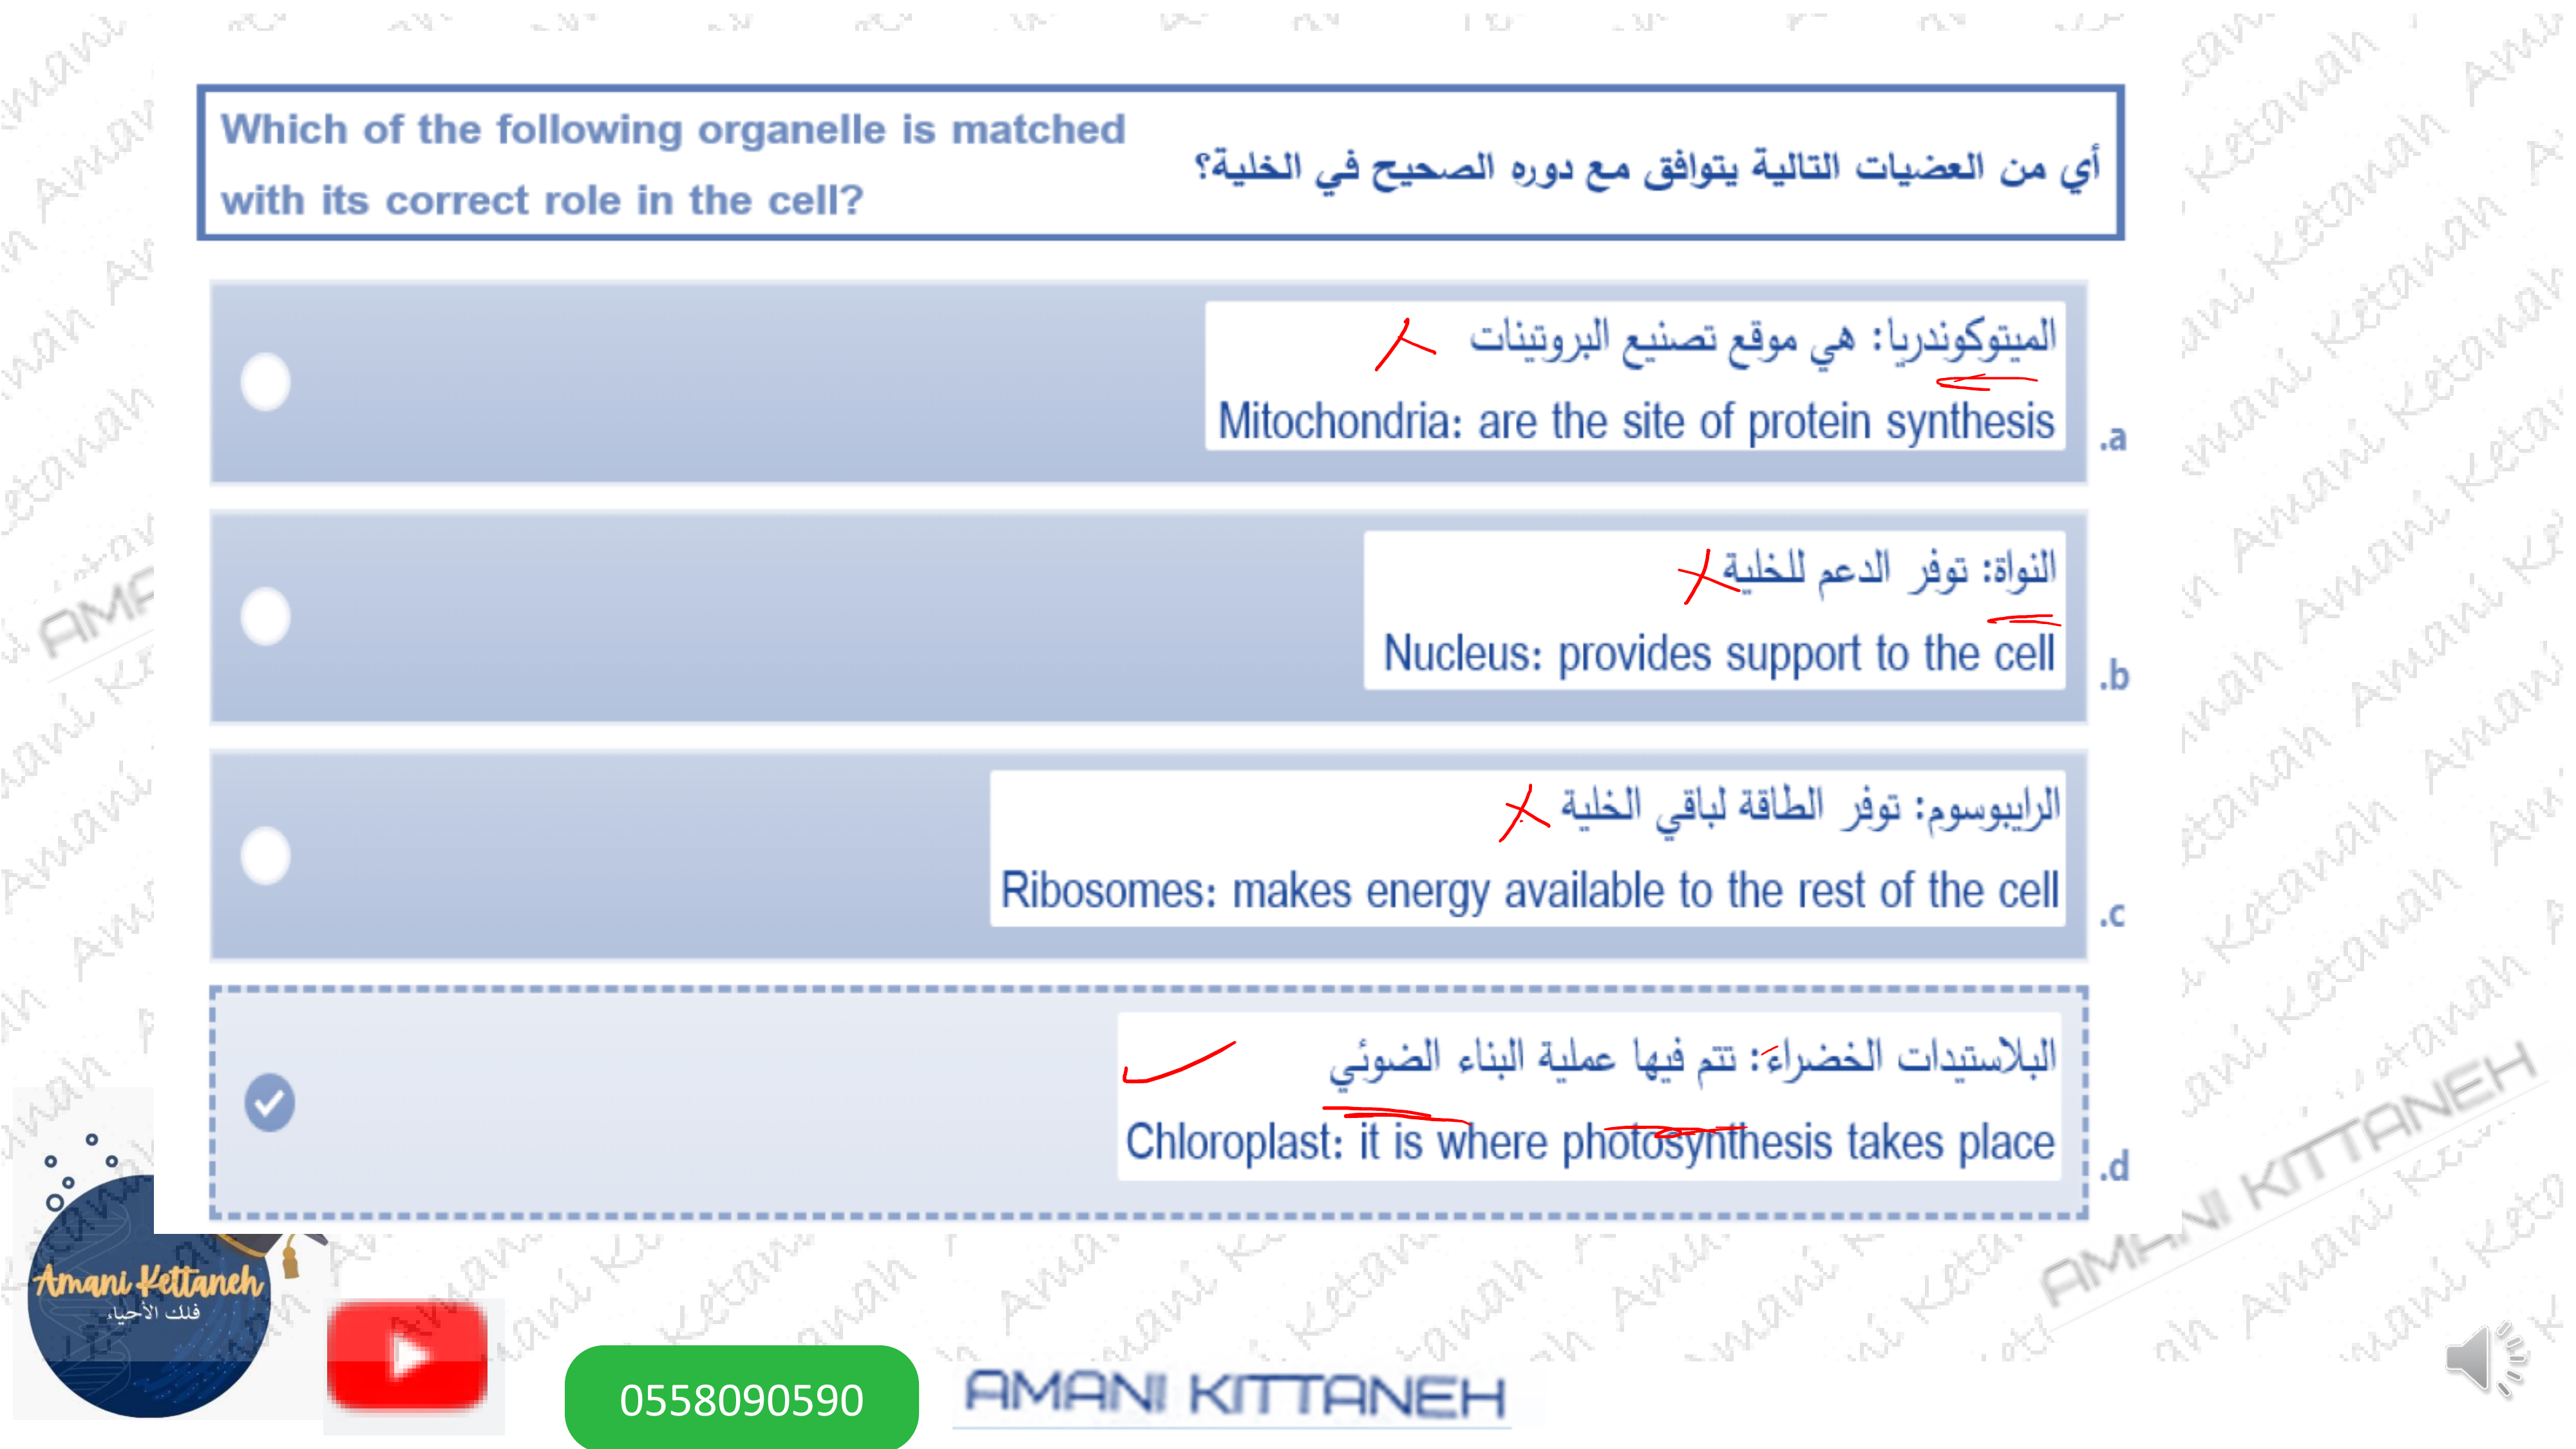 Which of the following organelle is matched
with its correct role in the cell?
أي من العضيات التالية يتوافق مع دوره الصحيح في الخلية؟
الميتوكوندريا: هي موقع تصنيع البروتينات
Mitochondria: are the site of protein synthesis
.a
النواة: توفر الدعم للخلية
Nucleus: provides support to the cell
.b
الرايبوسوم: توفر الطاقة لباقي الخلية
Ribosomes: makes energy available to the rest of the cell
.c
البلاستيدات الخضراء: تتم فيها عملية البناء الضوئي
Chloroplast: it is where photosynthesis takes place
.d
Amani Kettaneh
فلك الأحياء
0558090590
AMANI KITTANEH
AMANI KITTANEH